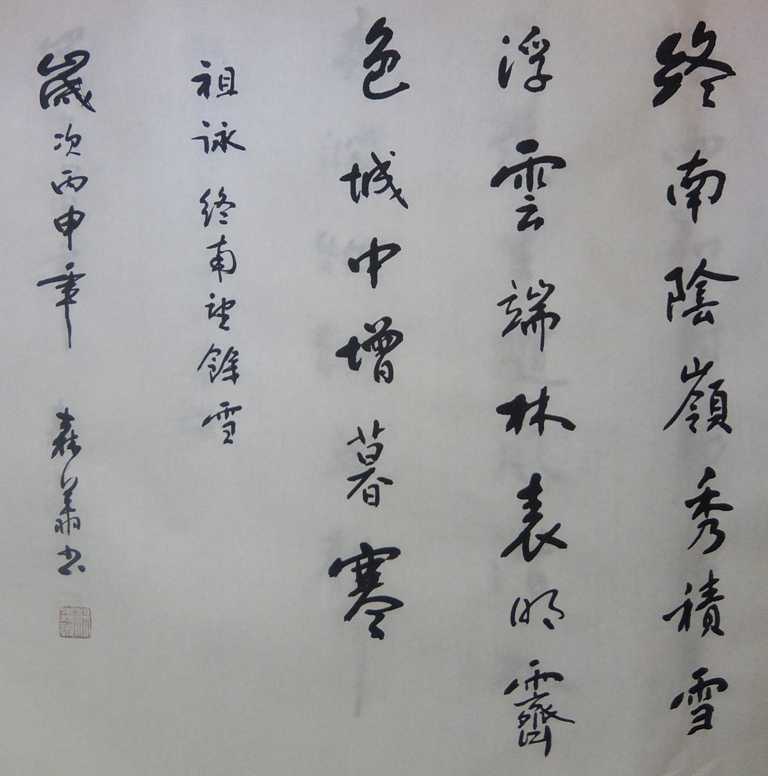 終南陰嶺秀積雪
浮雲端林表明霽
色城中增暮寒
祖詠終南望餘雪
歲次丙申年